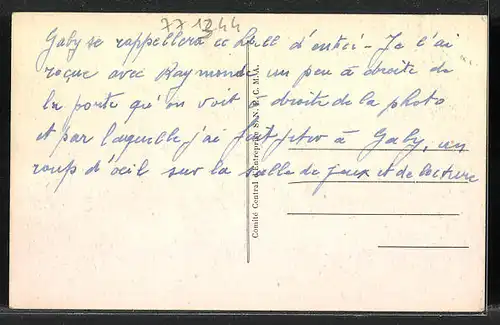 771344
Gaby se rappellera ce hall d'entrée - Je l'ai
reçue avec Raymonde un peu à droite de
la porte qu'on voit à droite de la photo
et par laquelle j'ai fait jeter à Gaby, un
coup d'oeil sur la salle de jeux et de lecture
Comité Central d'Entreprise S. N. E. C. M. A.